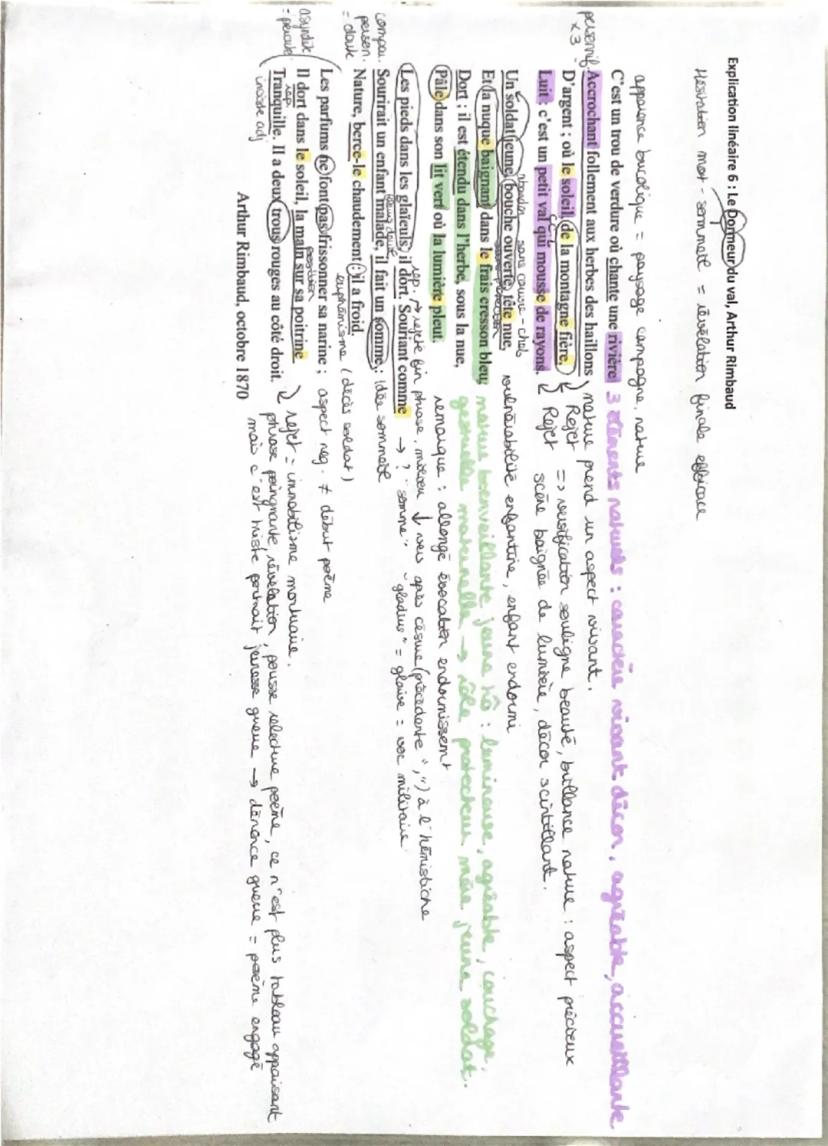 Explication linéaire 6 : Le Dormeur du val, Arthur Rimbaud
Hésitation mort - sommeil = révélation finale efficace
apparence bucolique = paysage campagne, nature
C'est un trou de verdure où chante une rivière 3 éléments naturels : caractère vivant décor, agréable, accueillante
personnif. x3
Accrochant follement aux herbes des haillons nature prend un aspect vivant.
D'argent ; où le soleil, de la montagne fière, Rejet => versification souligne beauté, brillance nature : aspect précieux
Luit : c'est un petit val qui mousse de rayons. Rejet scène baignée de lumière, décor scintillant.
sans casque - chef
Un soldat jeune, bouche ouverte, tête nue, vulnérabilité enfantine, enfant endormi
sans protection
Et la nuque baignant dans le frais cresson bleu, nature bienveillante jeune : lumineuse, agréable, couchage,
Dort ; il est étendu dans l'herbe, sous la nue, maternelle → rôle protecteur mère jeune soldat.
Pâle dans son lit vert où la lumière pleut. remarque : allongé évocation endormissement
rép. → rejeté fin phrase, milieu ↓ vers après césure (précédente ",") à l'hémistiche
Les pieds dans les glaïeuls, il dort. Souriant comme → ? "somme" "gladius" = glaive = voc militaire
compa. person. = doute
Sourirait un enfant malade, il fait un somme : idée sommeil
Nature, berce-le chaudement : il a froid.
euphémisme (décès soldat)
Les parfums ne font pas frissonner sa narine ; aspect nég. ≠ début poème
asyndète
rép.
position
Il dort dans le soleil, la main sur sa poitrine rejet = immobilisme mortuaire.
Tranquille. Il a deux trous rouges au côté droit. phrase poignante, révélation, pousse relecture poème, ce n'est plus tableau appaisant
insiste adj
mais c'est triste portrait jeunesse guerre → dénonce guerre = poème engagé
Arthur Rimbaud, octobre 1870